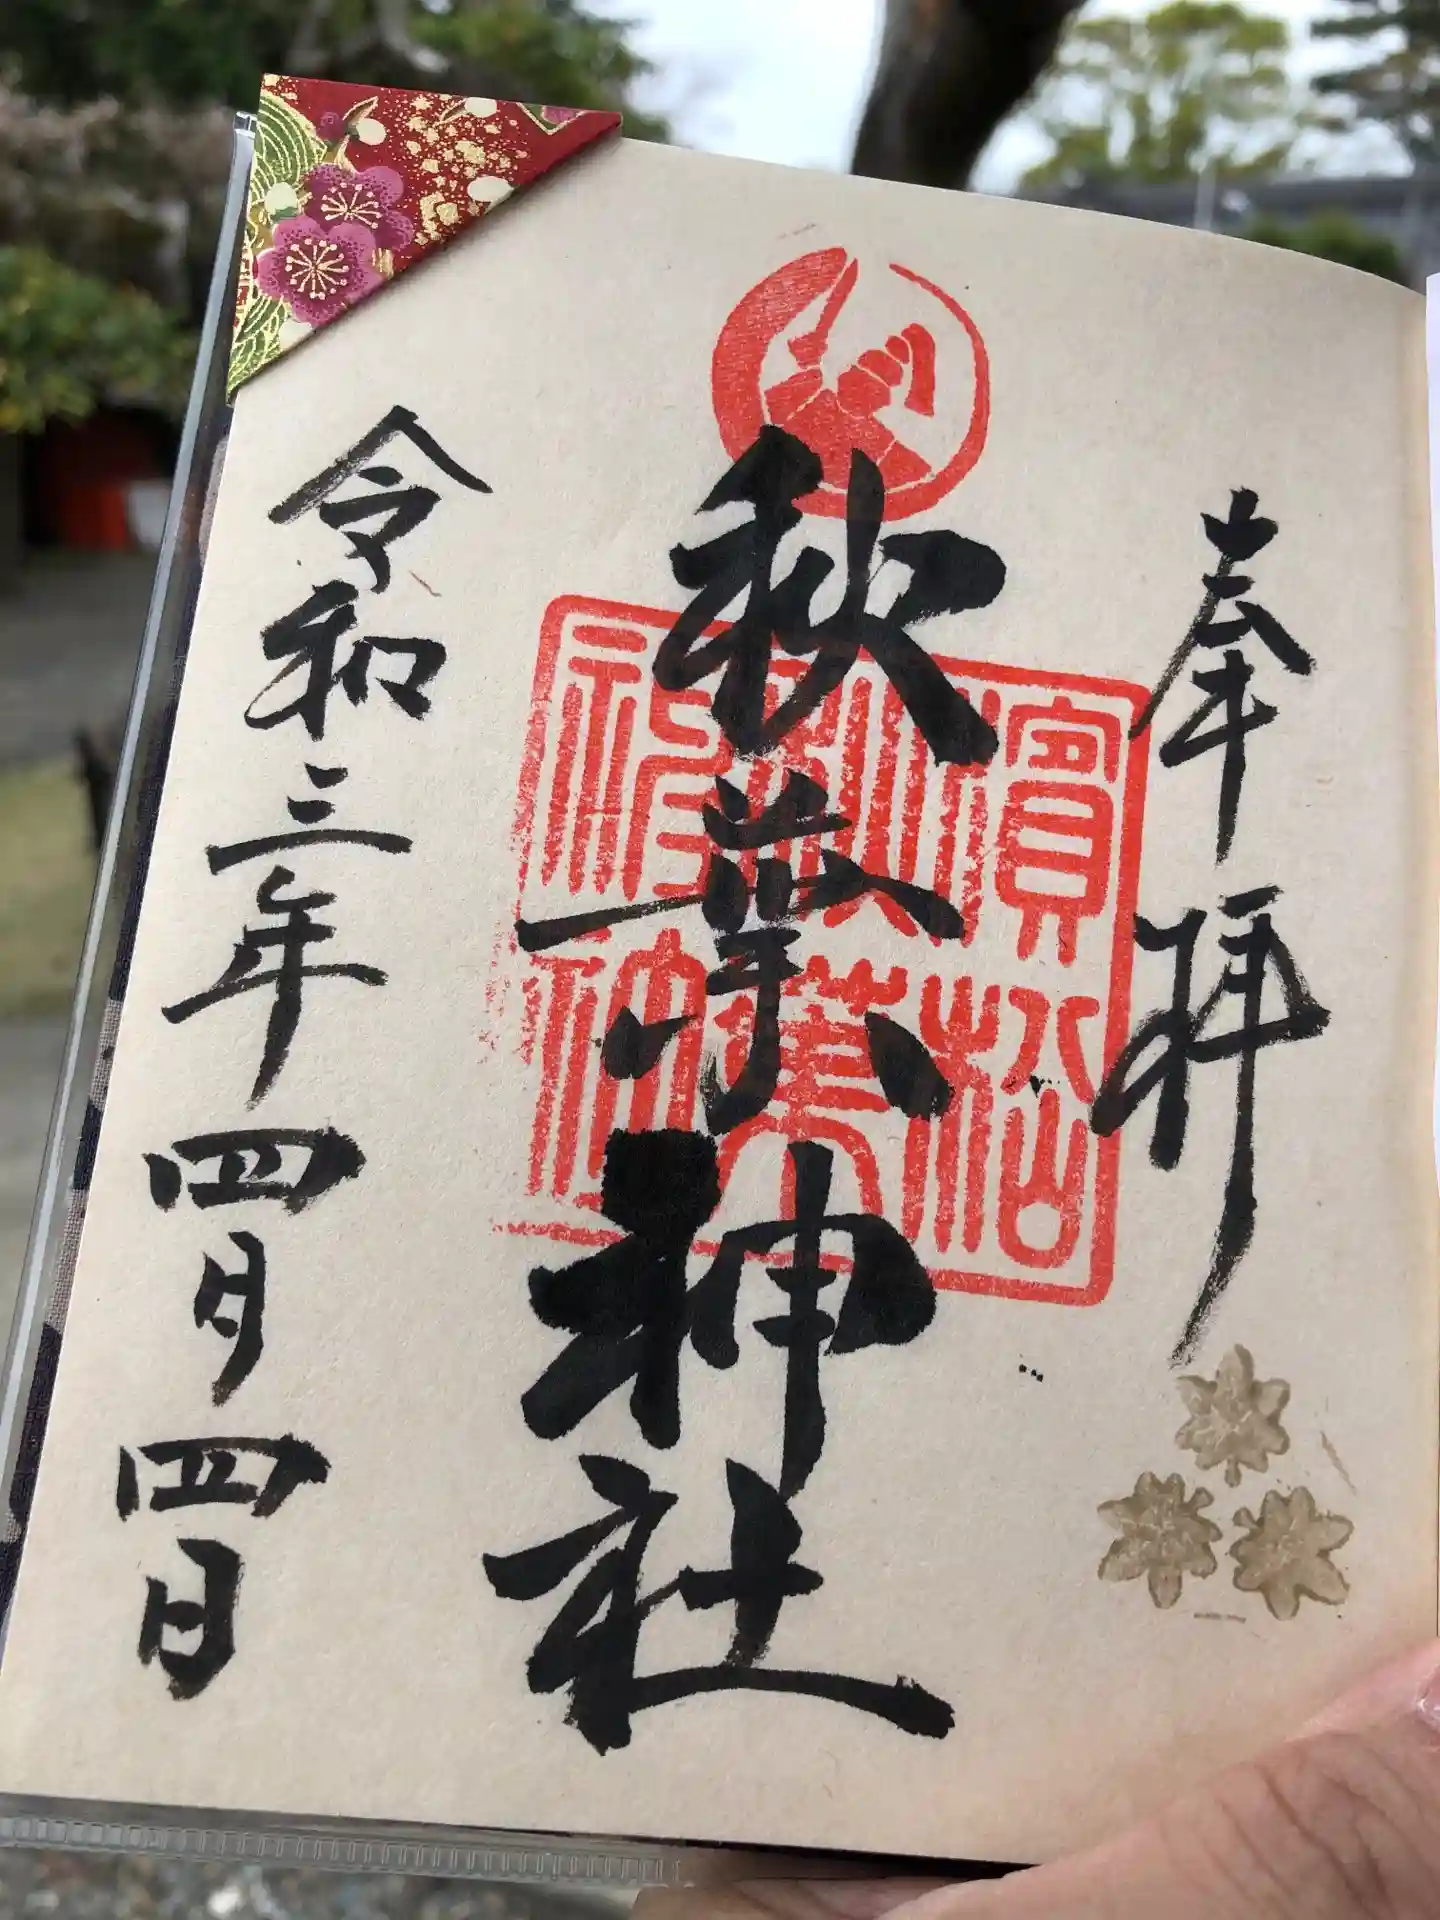 奉拝
秋葉神社
濱松
秋葉
神社
令和三年四月四日